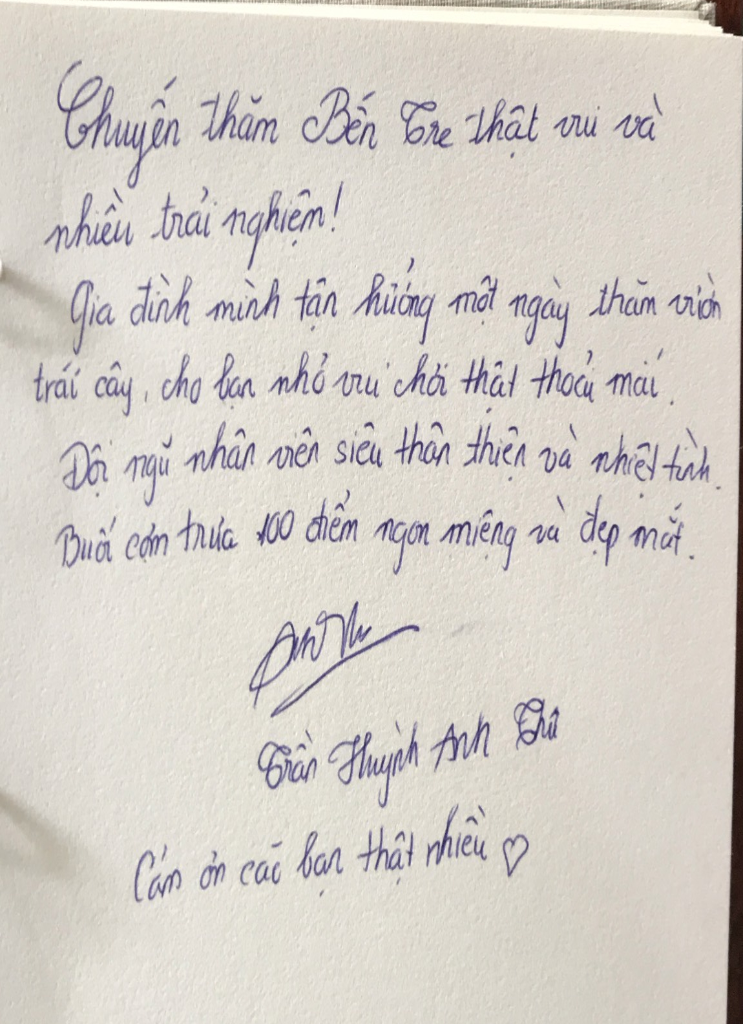 Chuyến thăm Bến Tre thật vui và
nhiều trải nghiệm!
Gia đình mình tận hưởng một ngày thăm vườn
trái cây, cho bạn nhỏ vui chơi thật thoải mái.
Đội ngũ nhân viên siêu thân thiện và nhiệt tình.
Buổi cơm trưa 100 điểm ngon miệng và đẹp mắt.
Trần Huỳnh Anh Thư
Cám ơn các bạn thật nhiều ♡